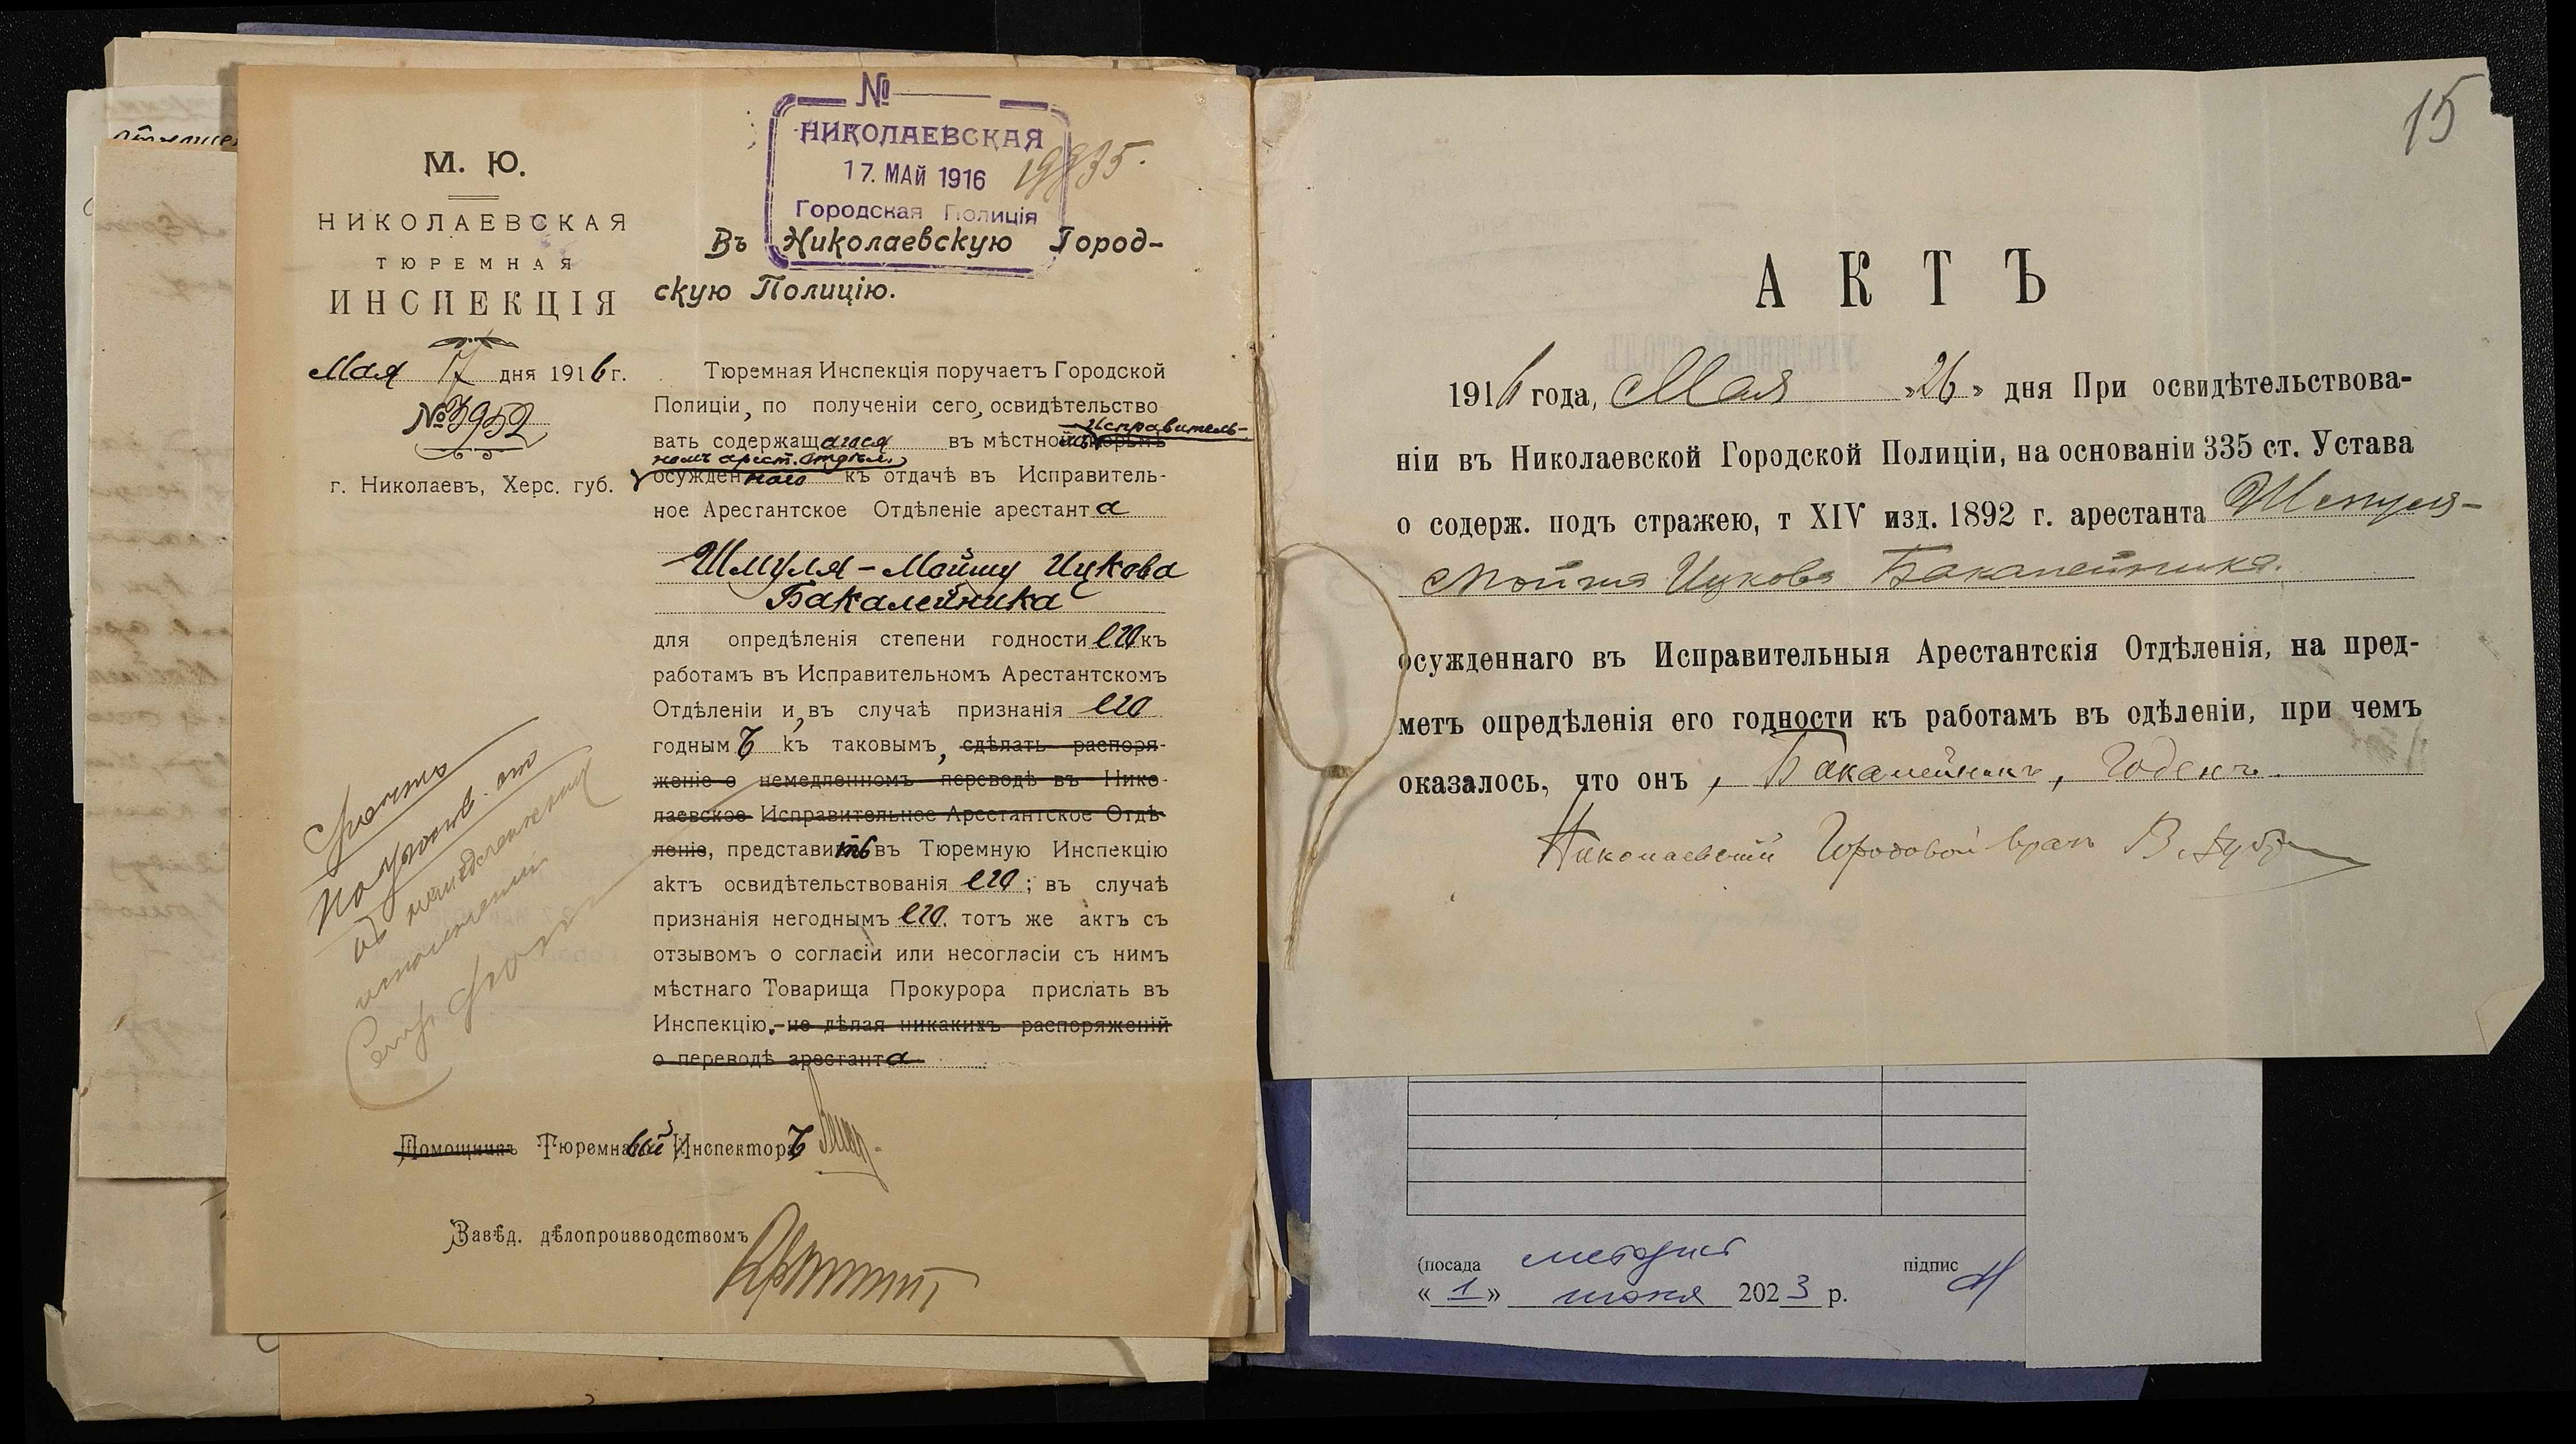 М. Ю.
НИКОЛАЕВСКАЯ
ТЮРЕМНАЯ
ИНСПЕКЦІЯ
Мая 17 дня 1916 г.
№ 3952
г. Николаевъ, Херс. губ.
№
НИКОЛАЕВСКАЯ
17. МАЙ 1916
Городская Полиція
19835.
Въ Николаевскую Город-
скую Полицію.
Тюремная Инспекція поручаетъ Городской
Полиціи, по полученіи сего, освидѣтельство-
вать содержащагося въ мѣстномъ Исправитель-
номъ арест. Отдѣл.
осужденнаго къ отдачѣ въ Исправитель-
ное Арестантское Отдѣленіе арестанта
Шмуля-Мойшу Ицкова
Бакалейника
для опредѣленія степени годности его къ
работамъ въ Исправительномъ Арестантскомъ
Отдѣленіи и, въ случаѣ признанія его
годнымъ къ таковымъ, сдѣлать распоря-
женіе о немедленномъ переводѣ въ Нико-
лаевское Исправительное Арестантское Отдѣ-
леніе, представить въ Тюремную Инспекцію
актъ освидѣтельствованія его; въ случаѣ
признанія негоднымъ его, тотъ же актъ съ
отзывомъ о согласіи или несогласіи съ нимъ
мѣстнаго Товарища Прокурора прислать въ
Инспекцію.- не дѣлая никакихъ распоряженій
о переводѣ арестанта
Помощникъ Тюремный Инспекторъ
Завѣд. дѣлопроизводствомъ
15
АКТЪ
1916 года, Мая „26" дня При освидѣтельствова-
ніи въ Николаевской Городской Полиціи, на основаніи 335 ст. Устава
о содерж. подъ стражею, т XIV изд. 1892 г. арестанта Шмуля-
Мойша Ицкова Бакалейника.
осужденнаго въ Исправительныя Арестантскія Отдѣленія, на пред-
метъ опредѣленія его годности къ работамъ въ одѣленіи, при чемъ
оказалось, что онъ, Бакалейникъ, годенъ.
Николаевскій Городовой врачъ
(посада методист підпис
«1» июня 2023 р.